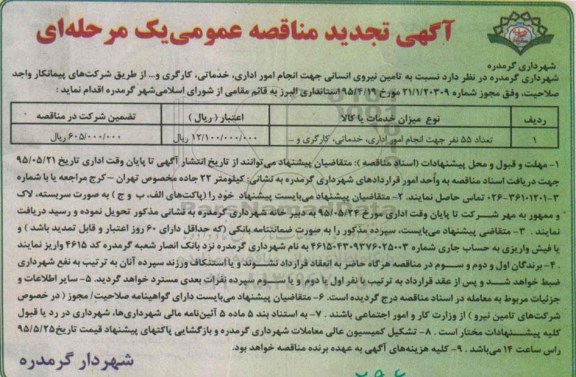 آگهی تجدید مناقصه عمومی یک مرحله‌ای
شهرداری گرمدره
شهرداری گرمدره در نظر دارد نسبت به تامین نیروی انسانی جهت انجام امور اداری، خدماتی، کارگری و... از طریق شرکت‌های پیمانکار واجد
صلاحیت، وفق مجوز شماره ۲۱/۱/۲۰۳۰۹ مورخ ۹۵/۴/۱۹ استانداری البرز به قائم مقامی از شورای اسلامی شهر گرمدره اقدام نماید:
ردیف نوع میزان خدمات یا کالا اعتبار (ریال) تضمین شرکت در مناقصه
۱ تعداد ۵۵ نفر جهت انجام امور اداری، خدماتی، کارگری و ... ۱۲/۱۰۰/۰۰۰/۰۰۰ ریال ۶۰۵/۰۰۰/۰۰۰ ریال
۱- مهلت و قبول و محل پیشنهادات (اسناد مناقصه): متقاضیان پیشنهاد می‌توانند از تاریخ انتشار آگهی تا پایان وقت اداری تاریخ ۹۵/۰۵/۲۱
جهت دریافت اسناد مناقصه به واحد امور قراردادهای شهرداری گرمدره به نشانی: کیلومتر ۲۲ جاده مخصوص تهران - کرج مراجعه یا با شماره
۳-۳۶۱۰۱۲۰۱-۰۲۶ تماس حاصل نمایند. ۲- متقاضیان پیشنهاد می‌بایست پیشنهاد خود را (پاکت‌های الف، ب و ج) به صورت سربسته، لاک
و ممهور به مهر شرکت تا پایان وقت اداری مورخ ۹۵/۰۵/۲۴ به دبیر خانه شهرداری گرمدره به نشانی مذکور تحویل نموده و رسید دریافت
نمایند. ۳- متقاضی پیشنهاد می‌بایست، سپرده مذکور را به صورت ضمانتنامه بانکی (که حداقل دارای ۶۰ روز اعتبار و قابل تمدید باشد) و
یا فیش واریزی به حساب جاری شماره ۴۶۱۵۰۴۳۰۹۳۷۶۰۲۵۰۰۳ به نام شهرداری گرمدره نزد بانک انصار شعبه گرمدره کد ۴۶۱۵ واریز نمایند
. ۴- برندگان اول و دوم و سوم در مناقصه هرگاه حاضر به انعقاد قرارداد نشوند و یا استنکاف ورزند سپرده آنان به ترتیب به نفع شهرداری
ضبط خواهد شد و پس از عقد قرارداد به ترتیب با نفر اول یا دوم و یا سوم سپرده نفرات بعدی مسترد خواهد گردید. ۵- سایر اطلاعات و
جزئیات مربوط به معامله در اسناد مناقصه درج گردیده است. ۶- متقاضیان پیشنهاد می‌بایست دارای گواهینامه صلاحیت / مجوز (در خصوص
شرکت‌های تامین نیرو) از وزارت کار و امور اجتماعی باشند. ۷- به استناد بند ۵ ماده ۵ آئین‌نامه مالی شهرداری‌ها، شهرداری در رد یا قبول
کلیه پیشنهادات مختار است. ۸- تشکیل کمیسیون عالی معاملات شهرداری گرمدره و بازگشایی پاکتهای پیشنهاد قیمت تاریخ ۹۵/۵/۲۵
راس ساعت ۱۴ می‌باشد. ۹- کلیه هزینه‌های آگهی به عهده برنده مناقصه خواهد بود.
شهردار گرمدره